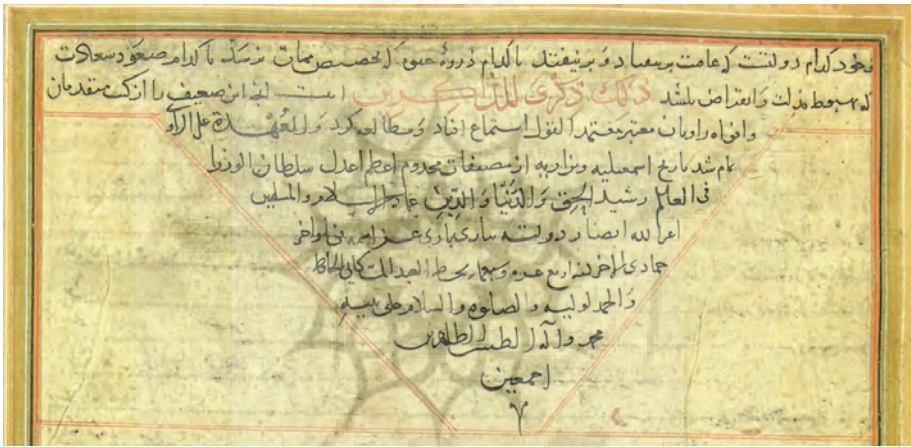 و خود کدام دولتست که عاقبت بر نیفتاد و بر نیفتد یا کدام ذروهٔ که بحضیض نرسد یا کدام صعود سعادت
که بهبوط مذلت و انقراض نکشد ذلک ذکری للذاکرین است این ضعیف را از کتب متقدمان
و افواه راویان معتبر معتمد القول استماع افتاد و مطالعه کرد و العهدة علی الراوی
تمام شد تاریخ اسمعیلیه و نزاریه از مصنفات مخدوم اعظم اعدل سلطان الوزرا
فی العالم رشید الحق و الدنیا و الدین عماد الاسلام و المسلمین
اعز الله انصار دولته عز اسمه فی اواخر
جمادی الاخر سنه اربع عشره و سبعمایه بخط العبد
و الحمد لولیه و الصلوة و السلام علی نبیه
محمد و آله الطیبین الطاهرین
اجمعین